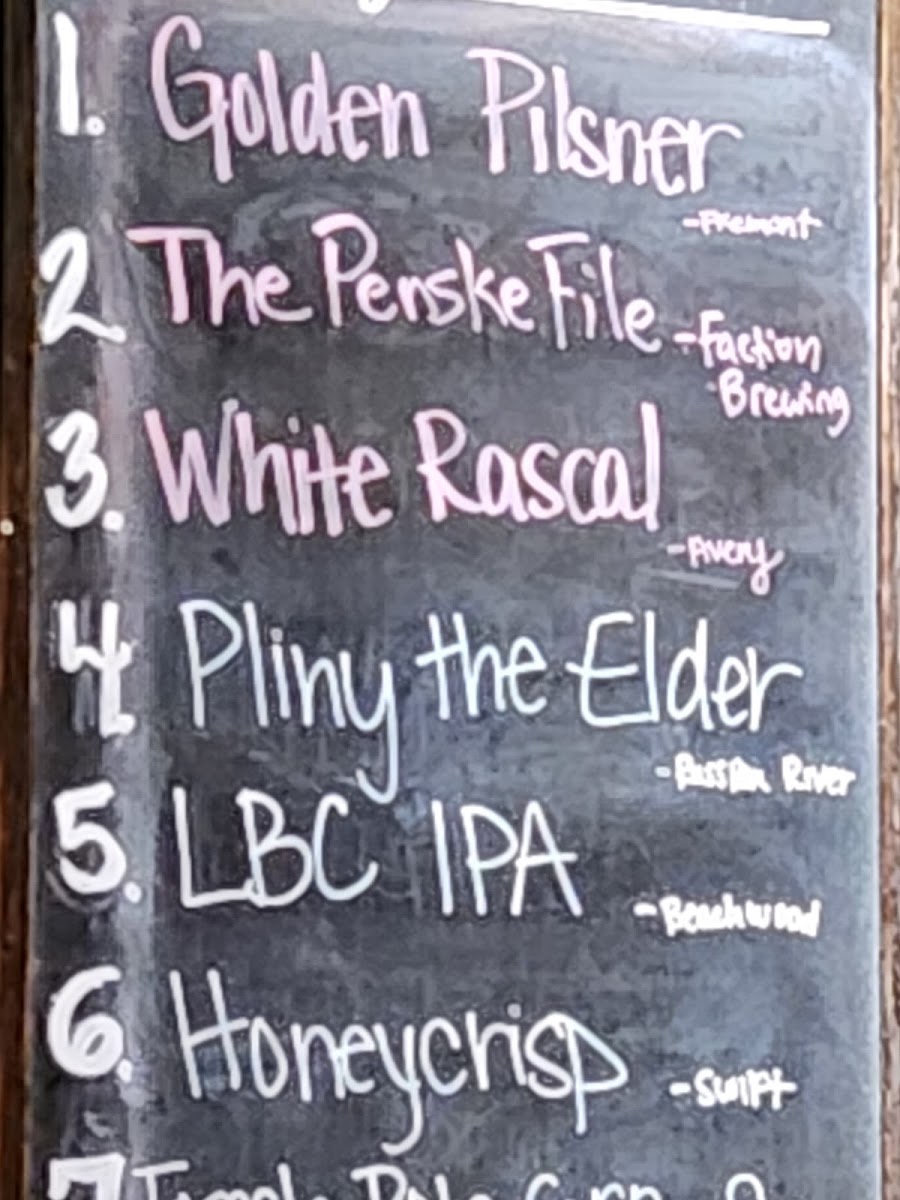 1. Golden Pilsner
-Fremont
2. The Penske File -Faction
Brewing
3. White Rascal
-Avery
4 Pliny the Elder
-Russian River
5. LBC IPA
-Beachwood
6. Honeycrisp
-Swift
7